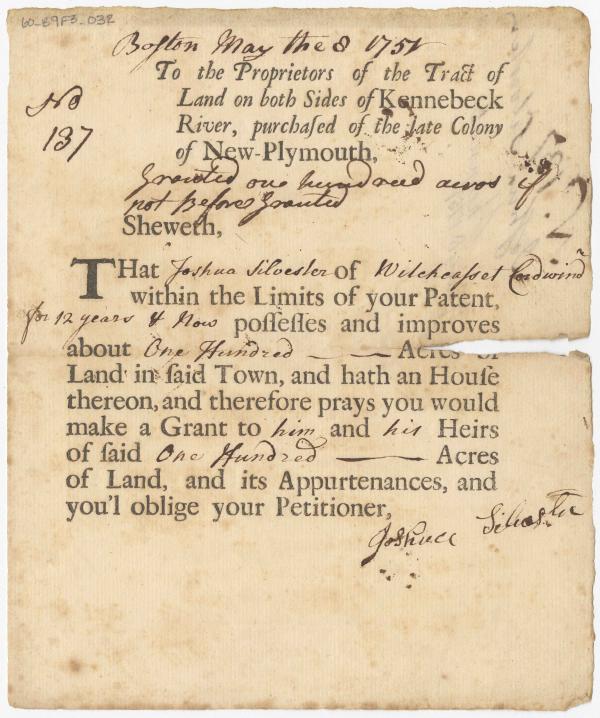 60_89F3_032
Boston May the 8 1751
To the Proprietors of the Tract of
No
Land on both Sides of Kennebeck
137
River, purchaſed of the late Colony
of New-Plymouth,
Granted one hundreed acros if
not Before Granted
Sheweth,
THat Joshua Silvester of Witcheasset Cordwindr
within the Limits of your Patent,
for 12 years & Now poſſeſſes and improves
about One Hundred Acres of
Land in ſaid Town, and hath an Houſe
thereon, and therefore prays you would
make a Grant to him and his Heirs
of ſaid One Hundred Acres
of Land, and its Appurtenances, and
you'l oblige your Petitioner,
Joshua Silvester